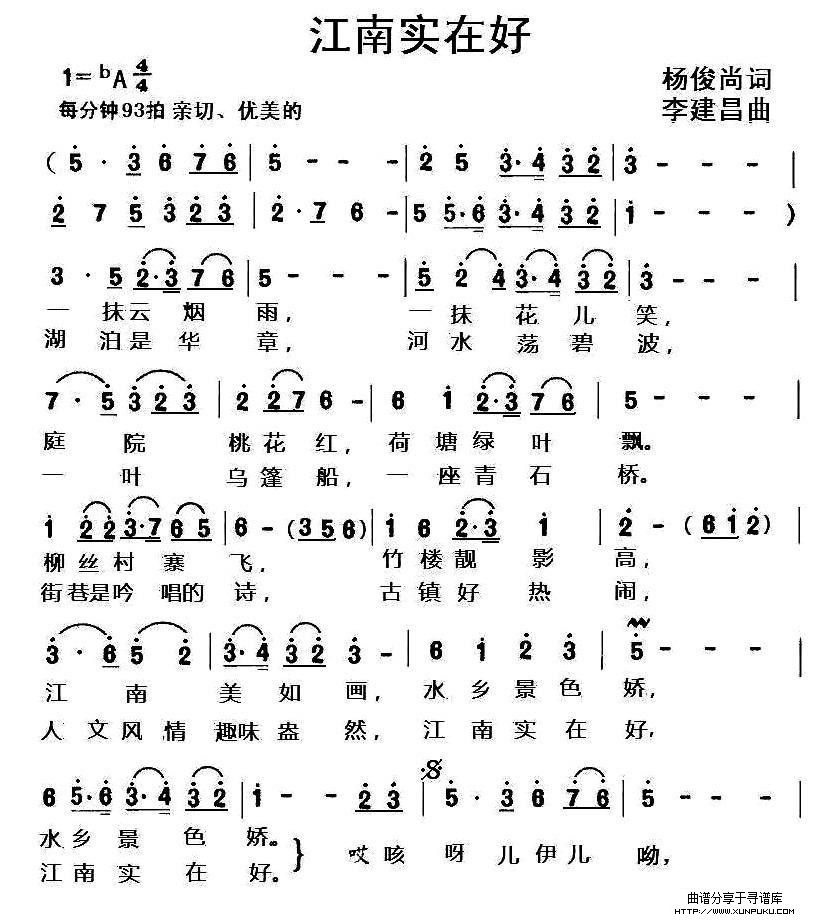 江南实在好
1=ᵇA 4/4
杨俊尚词
每分钟93拍 亲切、优美的
李建昌曲
(5· 3 6 7 6 | 5 - - | 2 5 3·4 3 2 | 3 - - - |
2 7 5 3 2 3 | 2·7 6 - | 5 5·6 3·4 3 2 | 1 - - - )
3· 5 2·3 7 6 | 5 - - - | 5 2 4 3·4 3 2 | 3 - - - |
一 抹云 烟 雨, 一 抹 花 儿 笑,
湖 泊是 华 章, 河 水 荡 碧 波,
7· 5 3 2 3 | 2 2 7 6 - | 6 1 2·3 7 6 | 5 - - - |
庭 院 桃 花 红, 荷 塘 绿 叶 飘。
一 叶 乌 篷 船, 一 座 青 石 桥。
1 2 2 3·7 6 5 | 6 - (3 5 6) | 1 6 2·3 1 | 2 - (6 1 2) |
柳 丝 村 寨 飞, 竹 楼 靓 影 高,
街巷是吟 唱的 诗, 古 镇 好 热 闹,
3· 6 5 2 | 3·4 3 2 3 - | 6 1 2 3 | 5 - - - |
江 南 美 如 画, 水 乡 景 色 娇,
人 文 风 情 趣味 盎 然, 江 南 实 在 好,
6 5·6 3·4 3 2 | 1 - - 2 3 | 5· 3 6 7 6 | 5 - - - |
水 乡 景 色 娇。
江 南 实 在 好。 } 哎 咳 呀 儿 伊 儿 呦,
曲谱分享于寻谱库
HTTP://WWW.XUNPUKU.COM